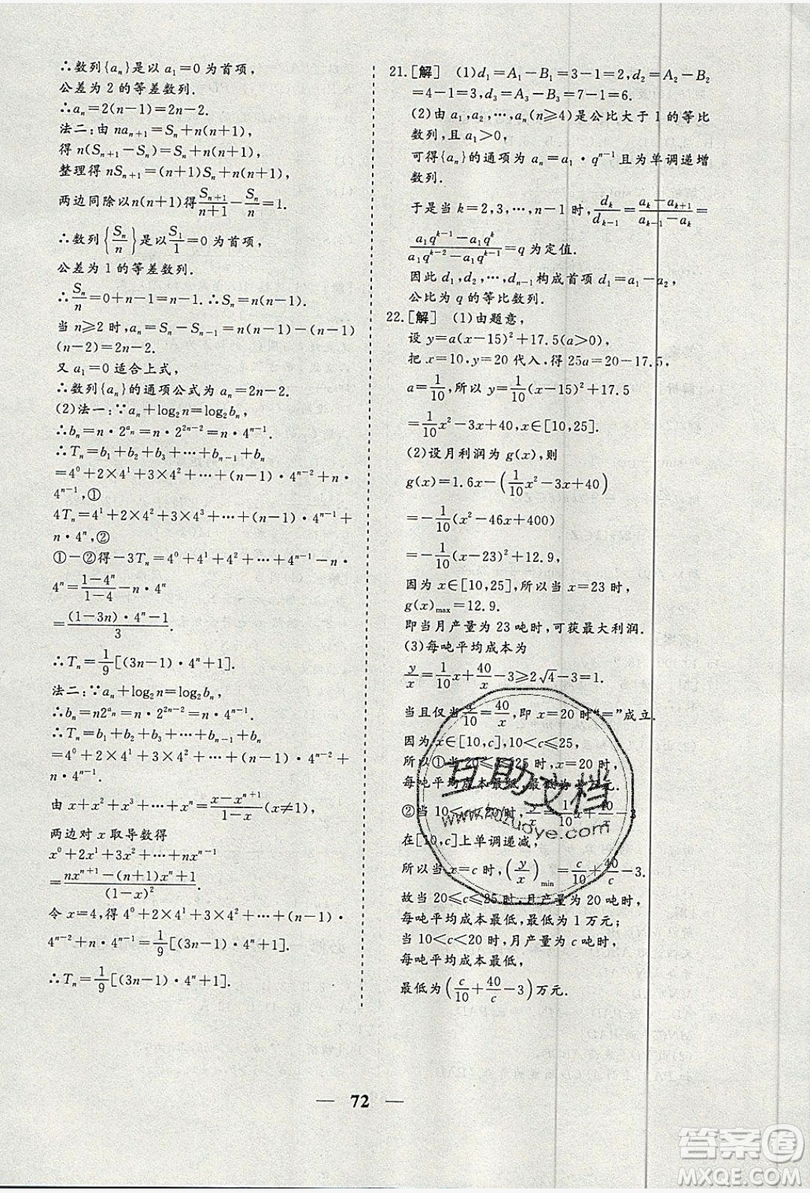 ∴数列{aₙ}是以 a₁=0为首项，
公差为2的等差数列.
∴aₙ=2(n−1)=2n−2.
法二：由 naₙ₊₁=Sₙ+n(n+1)，
得 n(Sₙ₊₁−Sₙ)=Sₙ+n(n+1)，
整理得 nSₙ₊₁=(n+1)Sₙ+n(n+1)，
两边同除以 n(n+1)得 Sₙ₊₁/(n+1)−Sₙ/n=1.
∴数列{Sₙ/n}是以 S₁/1=0为首项，
公差为1的等差数列.
∴Sₙ/n=0+n−1=n−1.∴Sₙ=n(n−1).
当 n≥2时，aₙ=Sₙ−Sₙ₋₁=n(n−1)−(n−1)
(n−2)=2n−2.
又 a₁=0适合上式，
∴数列{aₙ}的通项公式为 aₙ=2n−2.
(2)法一：∵aₙ+log₂n=log₂bₙ，
∴bₙ=n·2^(aₙ)=n·2²ⁿ⁻²=n·4ⁿ⁻¹.
∴Tₙ=b₁+b₂+b₃+…+bₙ₋₁+bₙ
=4⁰+2×4¹+3×4²+…+(n−1)·4ⁿ⁻²+n·
4ⁿ⁻¹,①
4Tₙ=4¹+2×4²+3×4³+…+(n−1)·4ⁿ⁻¹+n
·4ⁿ,②
①−②得−3Tₙ=4⁰+4¹+4²+…+4ⁿ⁻¹−n·
4ⁿ=(1−4ⁿ)/(1−4)−n·4ⁿ
=((1−3n)·4ⁿ−1)/3.
∴Tₙ=1/9[(3n−1)·4ⁿ+1].
法二：∵aₙ+log₂n=log₂bₙ，
∴bₙ=n2^(aₙ)=n·2²ⁿ⁻²=n·4ⁿ⁻¹.
∴Tₙ=b₁+b₂+b₃+…+bₙ₋₁+bₙ
=4⁰+2×4¹+3×4²+…+(n−1)·4ⁿ⁻²+n·
4ⁿ⁻¹.
由 x+x²+x³+…+xⁿ=(x−xⁿ⁺¹)/(1−x)(x≠1)，
两边对 x 取导数得
x⁰+2x¹+3x²+…+nxⁿ⁻¹
=(nxⁿ⁺¹−(n+1)xⁿ+1)/(1−x)².
令 x=4，得 4⁰+2×4¹+3×4²+…+(n−1)
·4ⁿ⁻²+n·4ⁿ⁻¹=1/9[(3n−1)·4ⁿ+1].
∴Tₙ=1/9[(3n−1)·4ⁿ+1].
21.[解] (1)d₁=A₁−B₁=3−1=2，d₂=A₂−B₂
=4−1=3，d₃=A₃−B₃=7−1=6.
(2)由 a₁，a₂，…，aₙ(n≥4)是公比大于1的等比
数列，且 a₁>0，
可得{aₙ}的通项为 aₙ=a₁·qⁿ⁻¹且为单调递增
数列.
于是当 k=2,3,…,n−1时，dₖ/dₖ₋₁=(aₖ−aₖ₊₁)/(aₖ₋₁−aₖ)=
(a₁qᵏ⁻¹−a₁qᵏ)/(a₁qᵏ⁻²−a₁qᵏ⁻¹)=q为定值.
因此 d₁，d₂，…，dₙ₋₁构成首项 d₁=a₁−a₂，
公比为 q 的等比数列.
22.[解] (1)由题意，
设 y=a(x−15)²+17.5(a>0)，
把 x=10，y=20代入，得25a=20−17.5，
a=1/10，所以 y=1/10(x−15)²+17.5
=1/10x²−3x+40，x∈[10,25].
(2)设月利润为 g(x)，则
g(x)=1.6x−(1/10x²−3x+40)
=−1/10(x²−46x+400)
=−1/10(x−23)²+12.9，
因为 x∈[10,25]，所以当 x=23时，
g(x)max=12.9.
即当月产量为23吨时，可获最大利润.
(3)每吨平均成本为
y/x=x/10+40/x−3≥2√4−3=1.
当且仅当 x/10=40/x，即 x=20时“=”成立.
因为 x∈[10,c]，10<c≤25，
所以①当20≤c≤25时，x=20时，
每吨平均成本最低，最低为1万元；
②当10<c<20时，y/x=x/10+40/x−3
在[10,c]上单调递减，
所以当 x=c 时，(y/x)min=c/10+40/c−3.
故当20≤c≤25时，月产量为20吨时，
每吨平均成本最低，最低为1万元；
当10<c<20时，月产量为c吨时，
每吨平均成本最低，
最低为(c/10+40/c−3)万元.
互助文档
— 72 —
答案圈
MXQE.COM